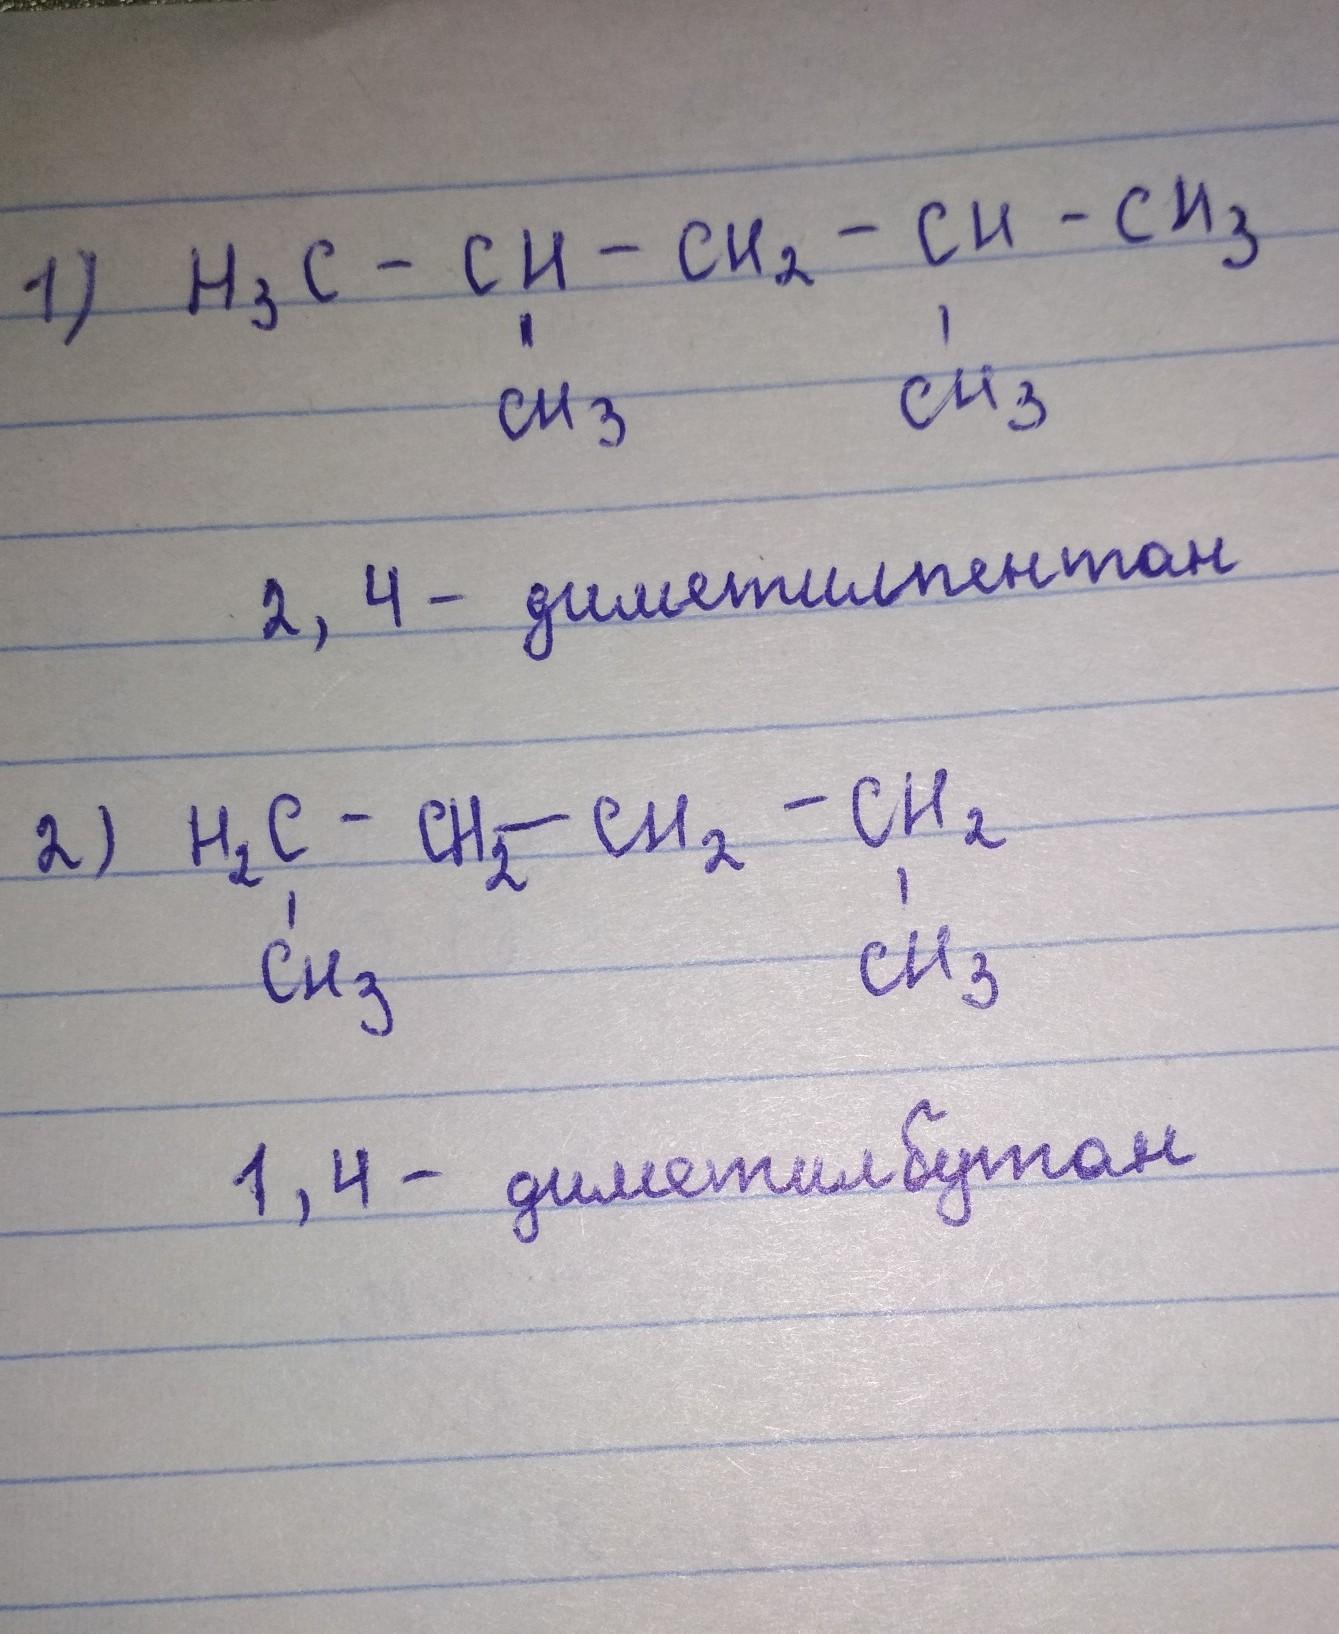 1) H₃C - CH - CH₂ - CH - CH₃
CH₃ CH₃
2, 4 - диметилпентан
2) H₂C - CH₂ - CH₂ - CH₂
CH₃ CH₃
1, 4 - диметилбутан